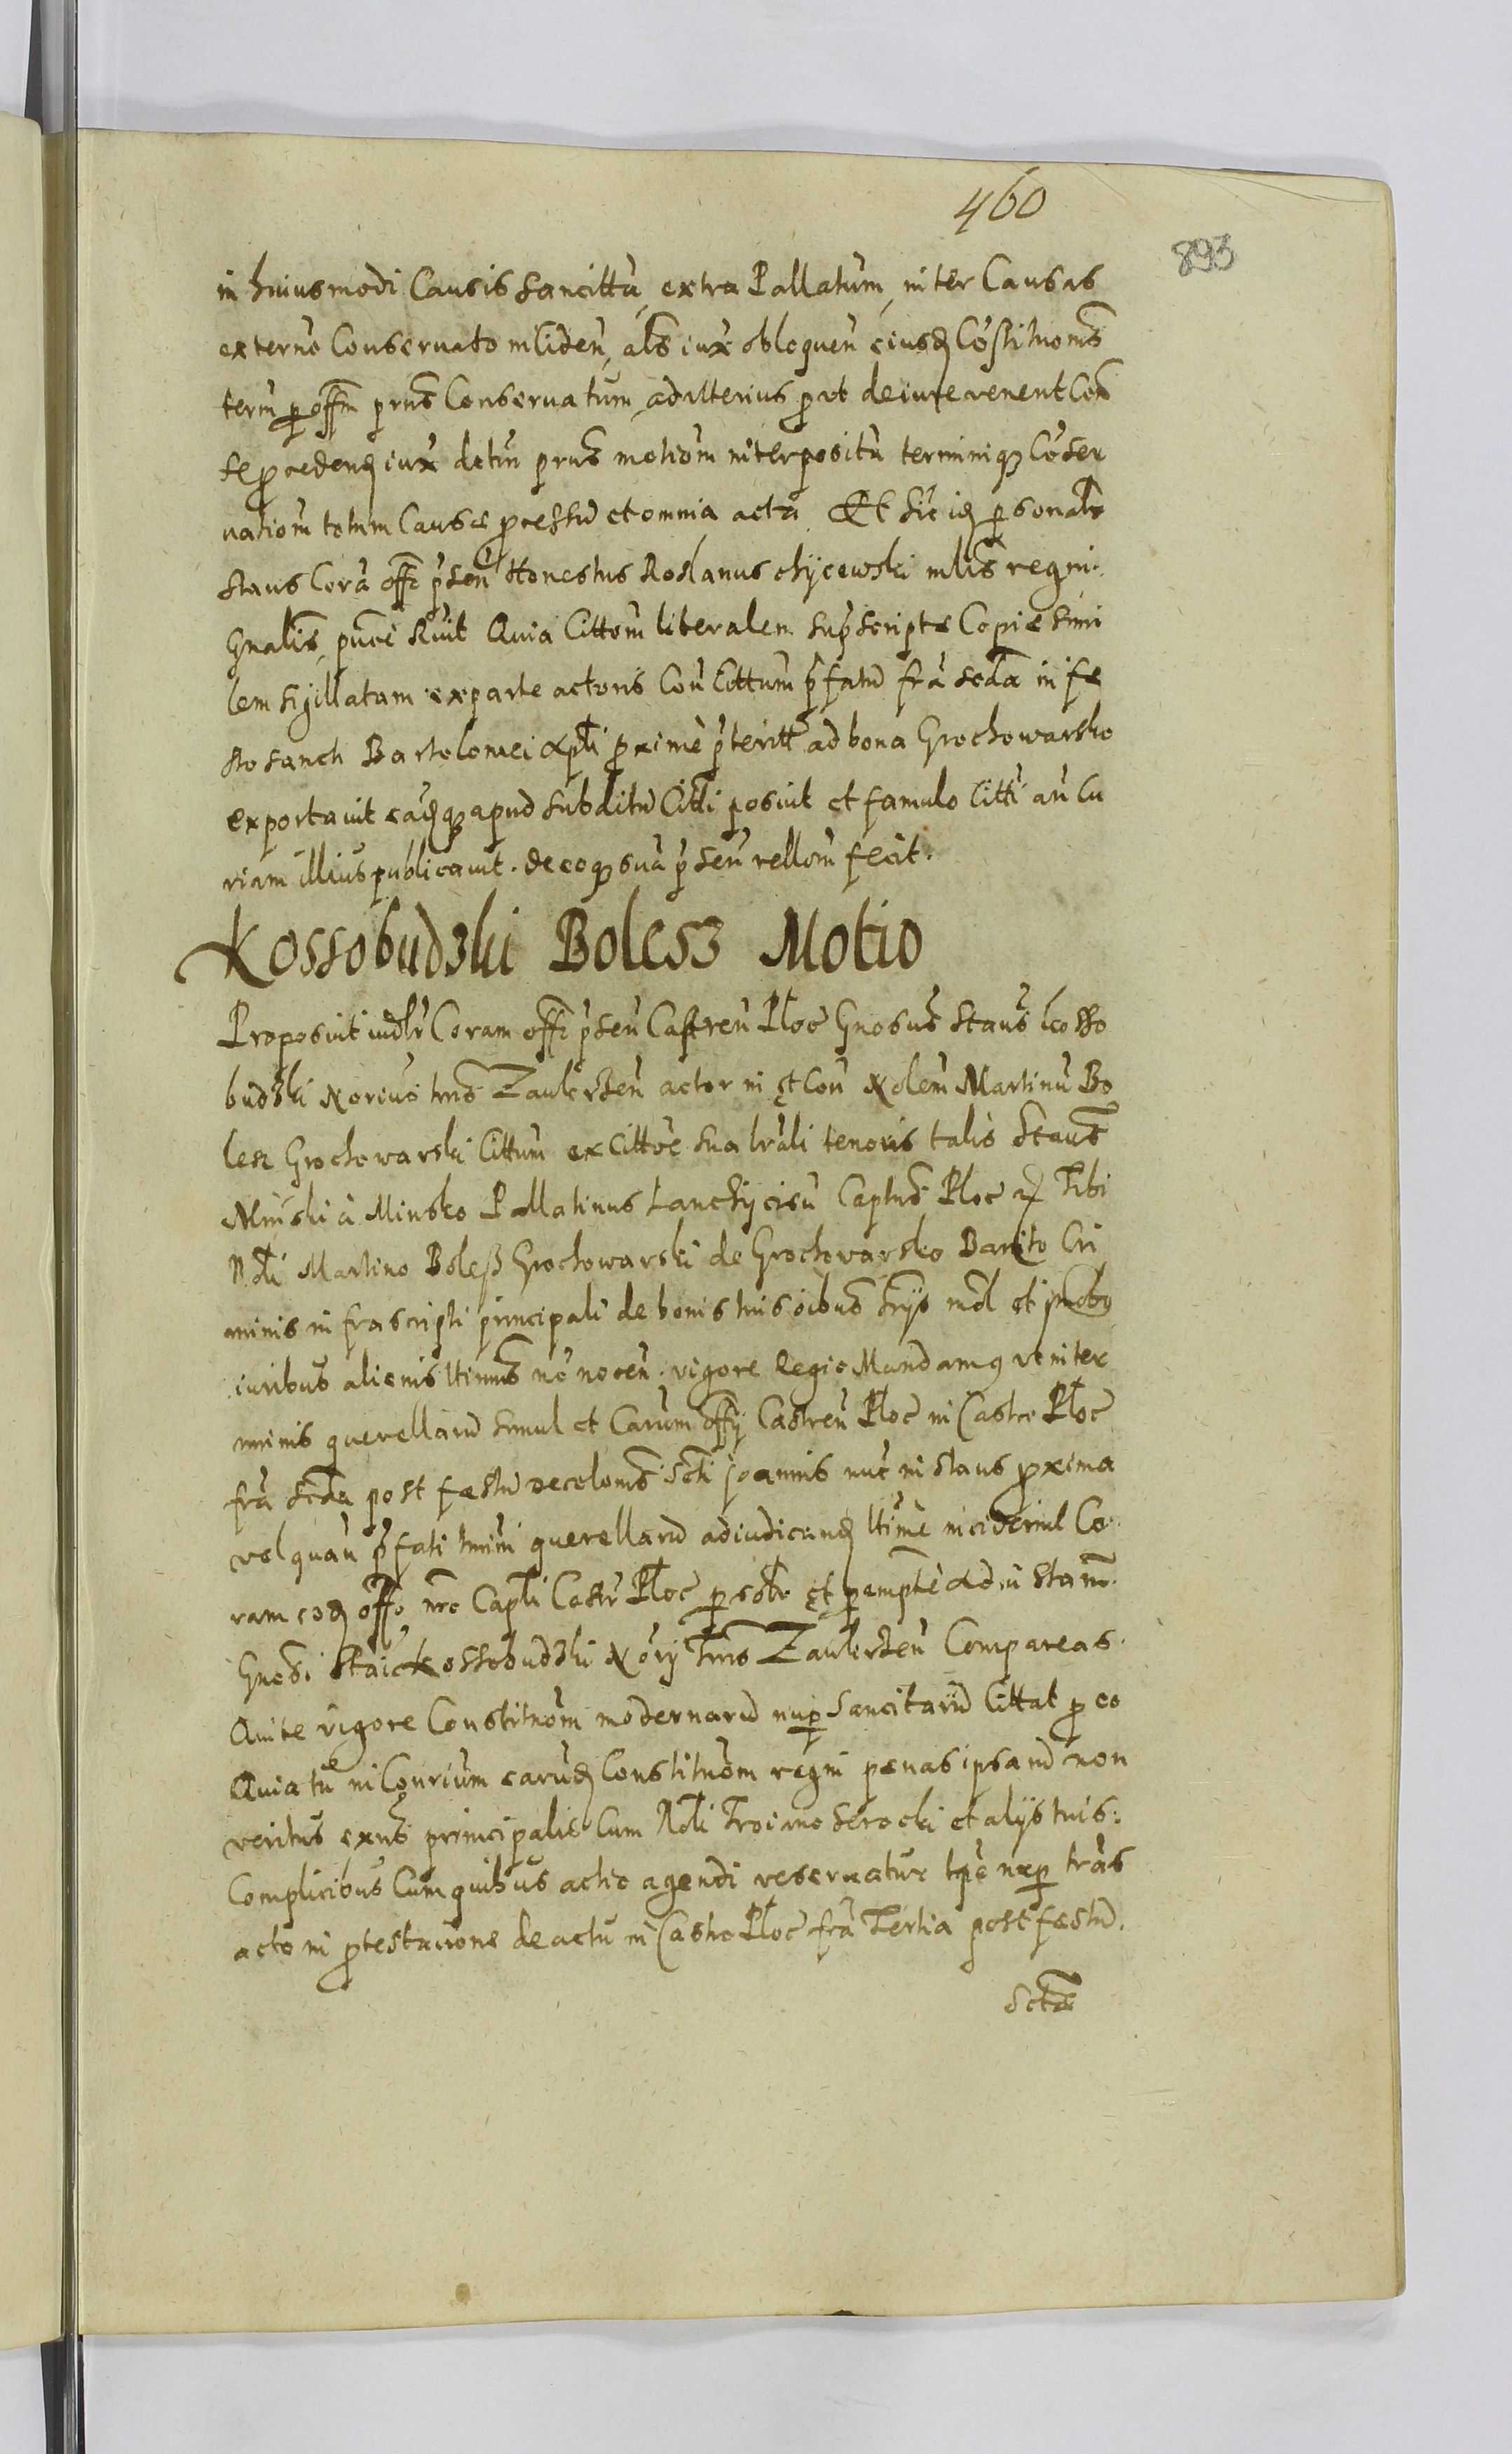 460
893
in huiusmodi Causis sancittũ, extra Pallatum, inter Causas
externe Conservato inciden̄, al̄s iux̄ obloquen̄ eiusd̄ Cõstituom̄s
term̄ p offm̄ prn̄s Conservatum, ad ulterius prt de iure venent Con
te procedend̄ iux̄ detin̄ prn̄s motiom̄ interpositũ terminiq3 Cõser
vatiom̄ totum Causæ processũ et omnia acta Et sic id̄ personal̄r
stans Corã off̄o p̄sen̄ Honestus Roslanus chycewski ml̄is regni
Gnalis, pūce Rvit Quia Cittom̄ liberalem suprascriptæ Copiæ simi
lem sigillatam ex parte actoris Con̄ Cittum p̄fatũ frã scda in fe
sto sancti Bartolomei Apl̄i proxime p̄teritt ad bona Grochowarsko
exportavit eãdq3 apud subditũ Citti posuit et famulo Citti an̄ Cu
riam illius publicavit. de eoq3 suã p̄sen̄ rellom̄ fecit.
Kossobudzki Bolesz Motio
Proposuit iudlr̄ Coram off̄o p̄sen̄ Castren̄ Ploc̄ Gnosus Staus kosso
budzki Notrius trris Zaukrzen̄ actor in et Con̄ Nolem Martinũ Bo
lesz Grochowarski Cittum ex Cittoe sua lrãli tenoris talis Staus
Minski à Minsko Pallatinus Lanchycien̄ Captus Ploc̄ Tibi
Nli Martino Boleß Grochowarski de Grochowarsko Barito Cri
minis infrascripti principali de bonis tuis oibus
iuribus alienis ltimus nõ nocen̄. vigore Regio Mandamus ut inter
minis querellarũ simul et Carum offy Castren̄ Ploc̄ in Castro Ploc̄
frã scda post festũ decolom̄s scti Joannis nūc instans proxima
vel quan̄ p̄fati tmini querellarũ adiudicand̄ ltime inciderint Co
ram eod̄ off̄o nro Capli Castr̄ Ploc̄ psolr et perempte ad instan̄
Gnosi Stai Kossobudzki Nory trris Zaukrzen̄ Compareas.
Qui te vigore Constituom̄ modernarũ nup sancitarũ Cittat pro eo
Quia tu in Cõnrium earũd̄ Constituom̄ regni penas ipsarũ non
veritus exns principalis Cum Nli Troiano Serocki et alys tuis
Complicibus Cum quibus actio agendi reservatur tpe nup trãs
acto in protestacione de actu in Castro Ploc̄ frã Tertia post festũ
Sctæ